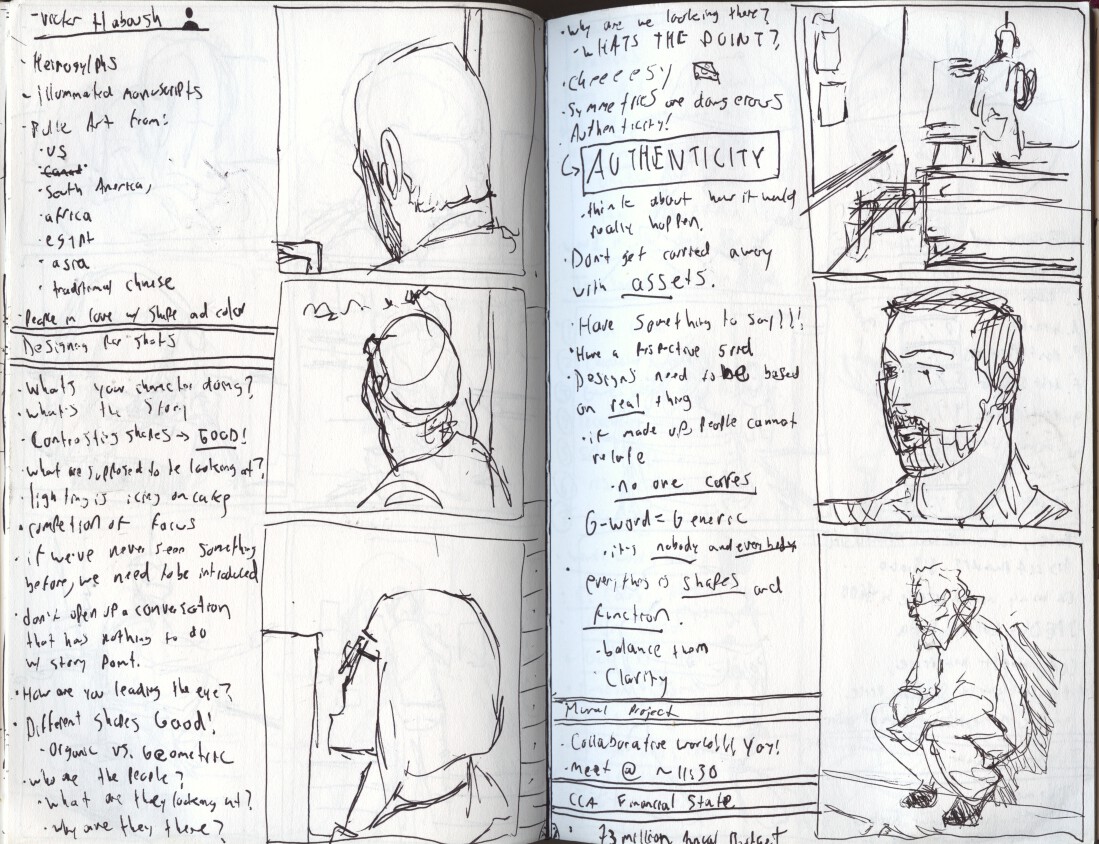 - Victor Haboush
- Heirogylphs
- illuminated manuscripts
- Public Art from:
· US
· South America,
· africa
· egypt
· asia
· traditional chinese
· People in love w/ shape and color
Designing For Shots
· What's your character doing?
· What's the Story
- Contrasting shapes → GOOD!
· what are supposed to be looking at?
· lighting is icing on cake
· competion of focus
· if we've never seen something
before, we need to be introduced
· don't open up a conversation
that has nothing to do
w/ story point.
· How are you leading the eye?
· Different shapes Good!
- Organic vs. Geometric
· who are the people?
· What are they looking at?
· why are they there?
· Why are we looking there?
- WHATS THE POINT?
· cheeeesy
· Symmetries are dangerous
Authenticity!
↳ AUTHENTICITY
· think about how it would
really happen.
· Don't get carried away
with assets.
· Have something to say!!!
· Have a perspective
· Designs need to be based
on real thing
· if made up, people cannot
relate
· no one cares
· G-word = Generic
· it's nobody and everybody
· everything is shapes and
function.
- balance them
· Clarity
Mural Project
· Collaborative world!!, Yay!
· Meet @ ~ 11:30
CCA Financial State
· 73 million Annual Budget